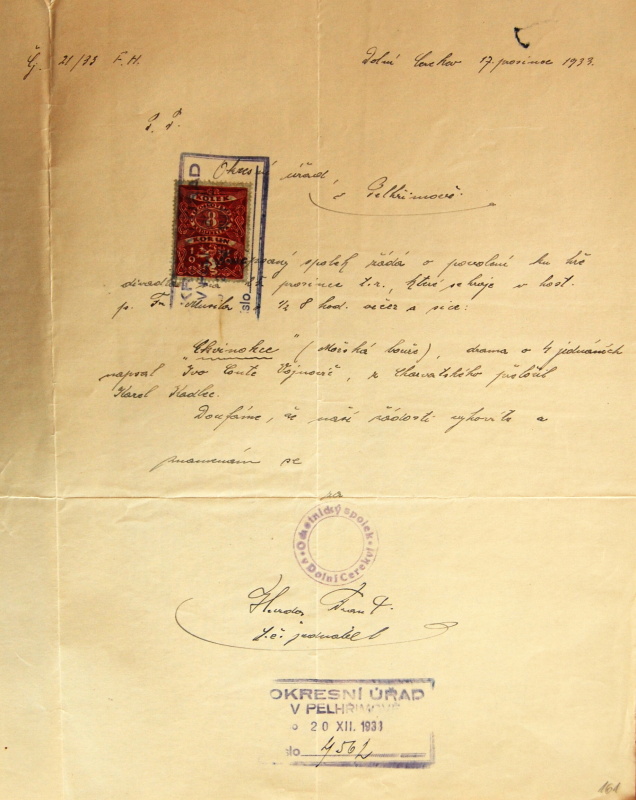 Čj. 21/33 F. H. Dolní Cerekev 17. prosince 1933.
P. T.
Okresní úřad
v Pelhřimově.
KOLEK
8
KORUN
spolek žádá o povolení ku hře
prosince t.r., které sehraje v host.
p. Fr. 1/2 8 hod. večer a sice:
"Ekvinokce" (Mořská bouře), drama o 4 jednáních
napsal Ivo Conte Vojnovič, z Charvatského přeložil
Karel Kadlec.
Doufáme, že naší žádosti vyhovíte a
znamenám se
za
Ochotnický spolek
v Dolní Cerekvi
Frant.
t.č. jednatel
OKRESNÍ ÚŘAD
V PELHŘIMOVĚ
20 XII. 1933
slo 4562
161